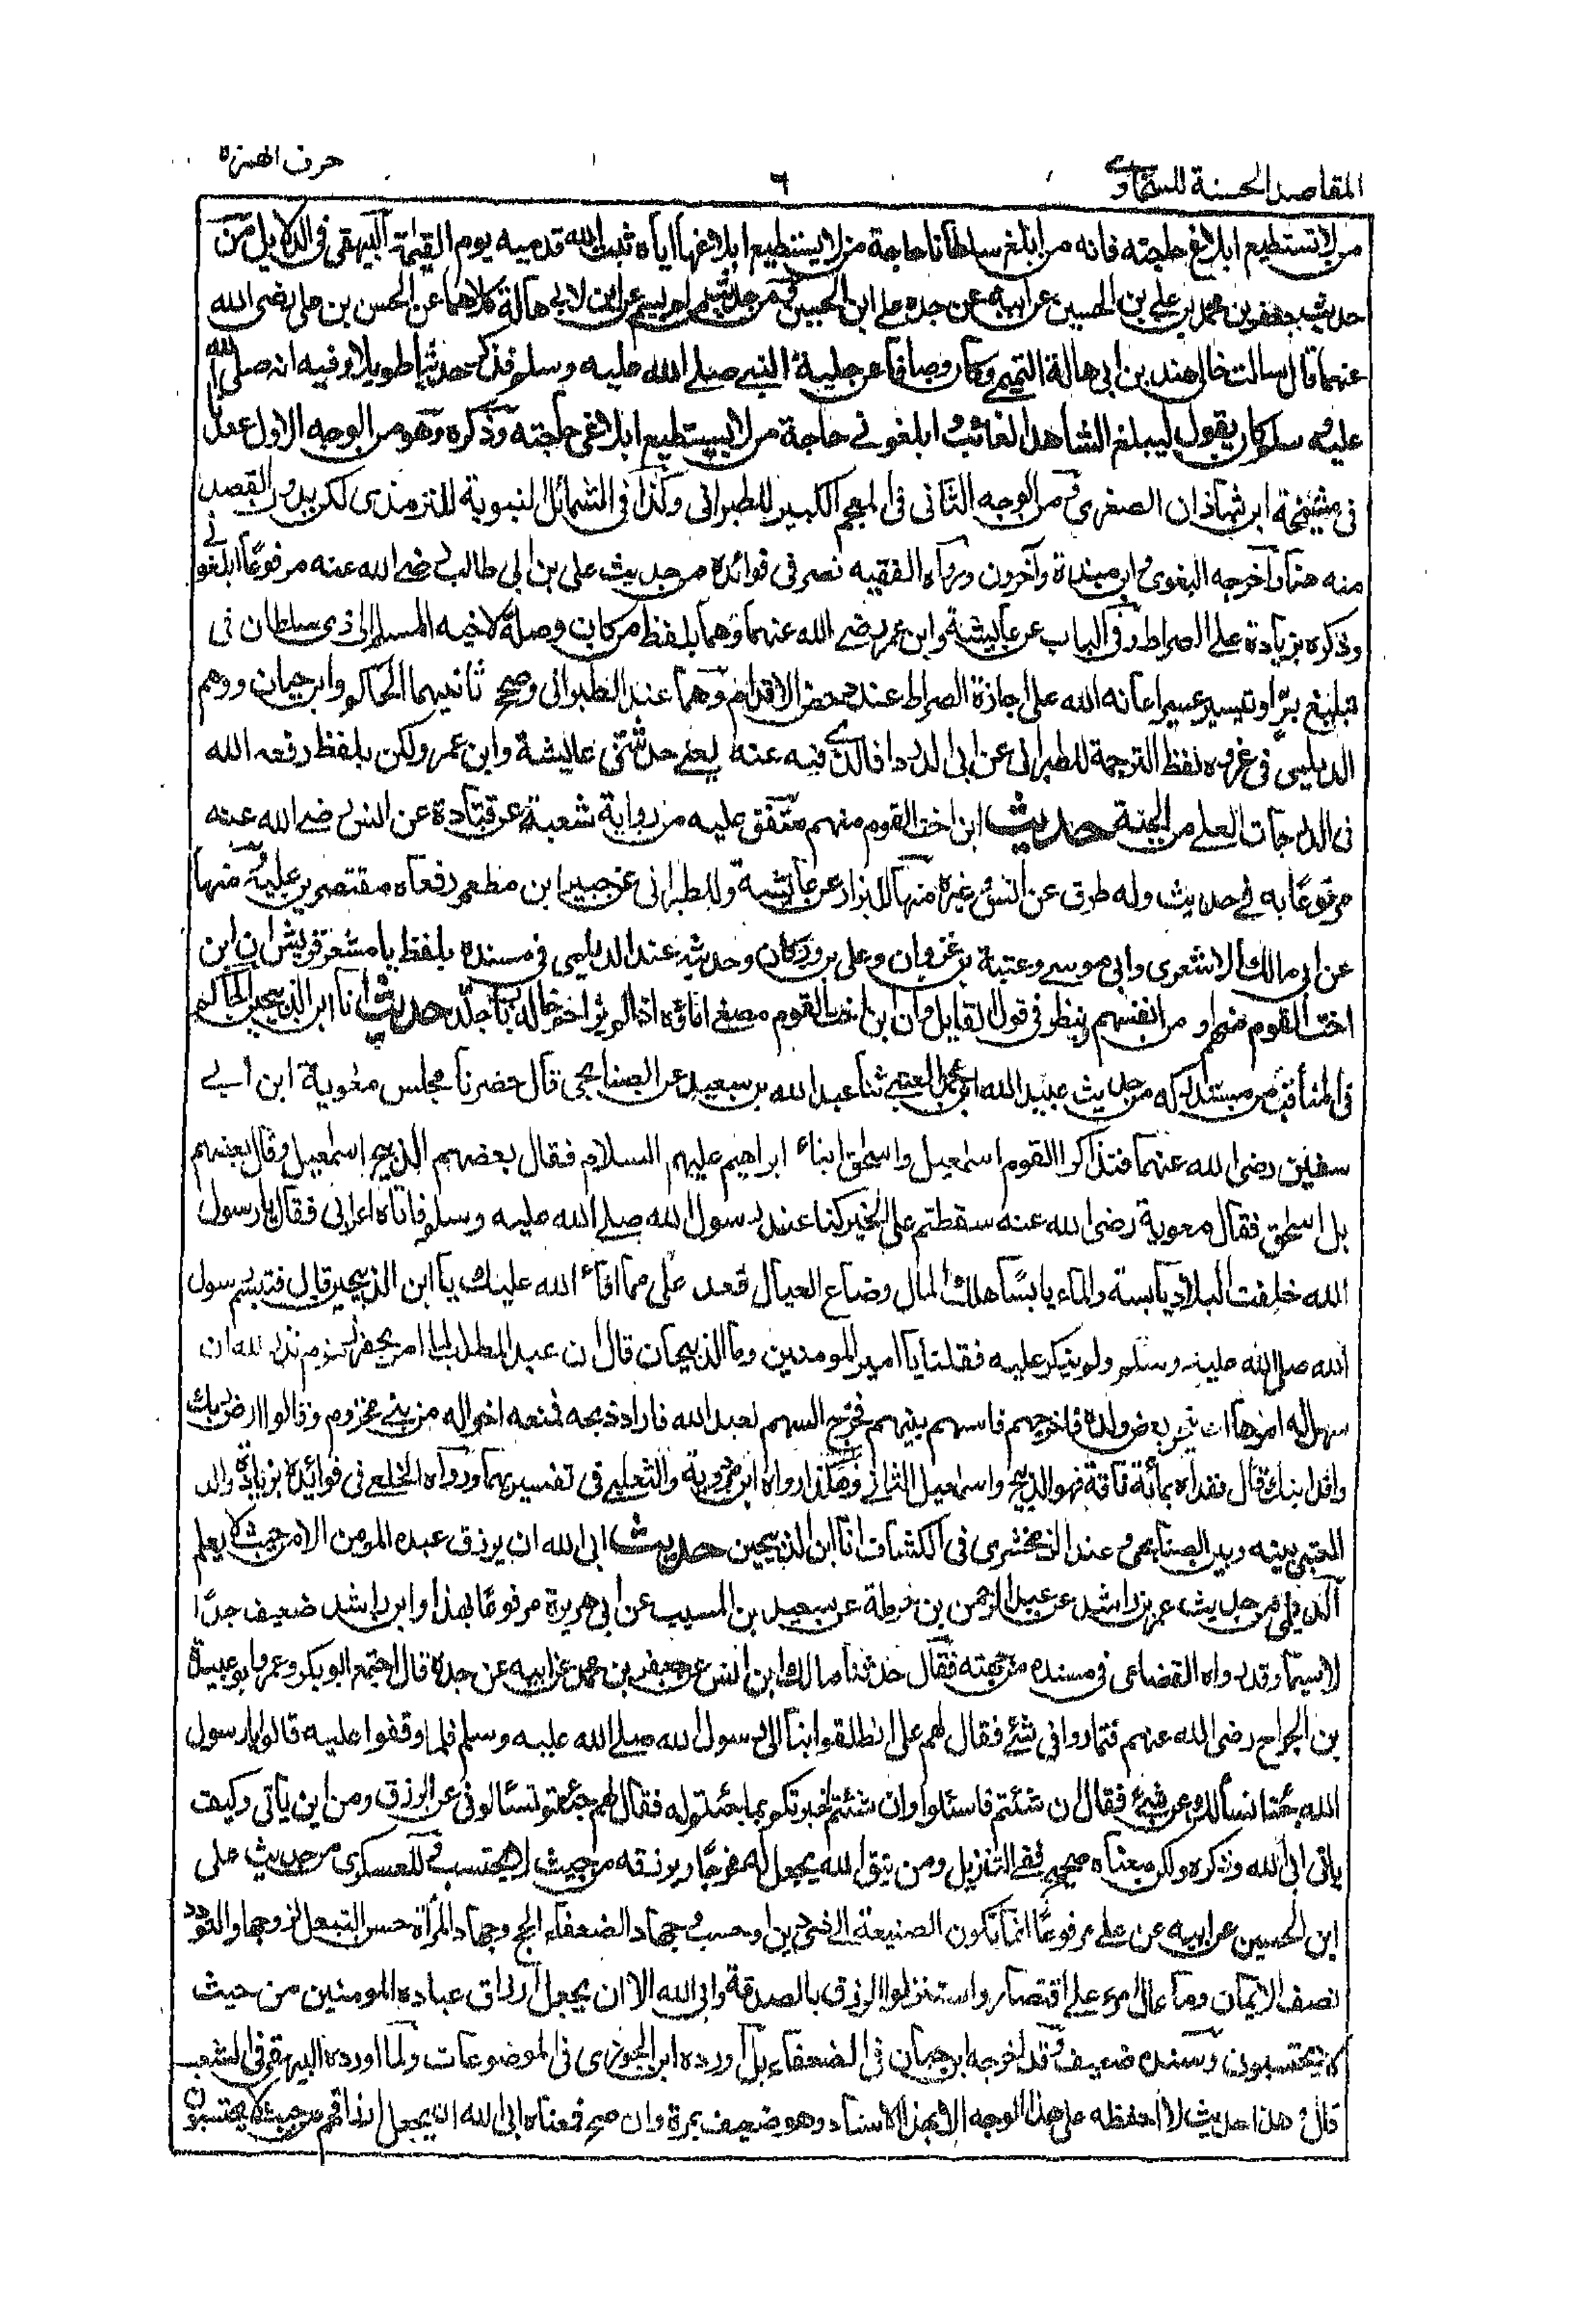 المقاصد الحسنة للسخاوى
٦
حرف الهمزة
من لا تستطيع ابلاغ حاجته فانه من ابلغ سلطانا حاجة من لا يستطيع ابلاغها اياه ثبت الله قدميه يوم القيٰمة البيهقى فى الدلايل من
حديث جعفر بن محمد بن على بن الحسين عن ابيه عن جده على ابن الحسين و من حديث عن ابن لابى هالة كلاهما عن الحسن بن على رضى الله
عنهما قال سالت خالى هند بن ابى هالة التميمى وكان وصافا عن حلية النبى صلى الله عليه وسلم فذكر حديثا طويلا وفيه انه صلى الله
عليه وسلم كان يقول ليبلغ الشاهد الغائب و ابلغونى حاجة من لا يستطيع ابلاغى حاجته وذكره وهو من الوجه الاول عند
فى مشيخة ابن شاذان الصغرى و من الوجه الثانى فى المعجم الكبير للطبرانى وكذا فى الشمائل النبوية للترمذى لكن بدون القصد
منه هنا وآخرجه البغوى و ابن مندة وآخرون ورواه الفقيه نصر فى فوائده من حديث على بن ابى طالب رضى الله عنه مرفوعًا ابلغونى
وذكره بزيادة على الصراط وفى الباب عن عائشة وابن عمر رضى الله عنهما وهما بلفظ من كان وصلة لاخيه المسلم الى ذى سلطان فى
تبليغ برّ او تيسير عسير اعانه الله على اجازة الصراط عند دحض الاقدام وهما عند الطبرانى وصحح ثانيهما الحاكم وابن حبان ووهم
الديلمى فى عزوه لفظ الترجمة للطبرانى عن ابى الدرداء فالذى فيه عنه يعنى حديثى عايشة وابن عمر ولكن بلفظ رفعه الله
فى الدرجات العلى من الجنة حديث ابن اخت القوم منهم متفق عليه من رواية شعبة عن قتادة عن انس رضى الله عنه
مرفوعًا به فى حديث وله طرق عن انس وغيره منها للبزار عن عائشة وللطبرانى عن جبير ابن مطعم رفعاه مقتصرين عليه و منها
عن ابى مالك الاشعرى وابى موسى وعتبة بن غزوان وعلى بن وركان وحديثه عند الديلمى فى مسنده بلفظ يا معشر قريش ان ابن
اخت القوم منهم او من انفسهم وينظر فى قول القايل وان بن اخت القوم مصغى اناؤه اذا لم يزاحم خاله باب جلد حديث انا ابن الذبيحين الحاكم
فى المناقب من مستدركه من حديث عبيد الله ابن محمد العتبى ثنا عبد الله بن سعيد عن الصنابحى قال حضرنا مجلس معٰوية ابن ابى
سفيٰن رضى الله عنهما فتذاكرا القوم اسمٰعيل واسحٰق ابناء ابراهيم عليهم السلام فقال بعضهم الذبيح اسمٰعيل وقال بعضهم
بل اسحٰق فقال معوية رضى الله عنه سقطتم على الخبير كنا عند رسول الله صلى الله عليه وسلم فاتاه اعرابى فقال يا رسول
الله خلفت البلاد يابسة والماء يابسًا هلك المال وضاع العيال فعد على مما افاء الله عليك يا ابن الذبيحين قال فتبسم رسول
الله صلى الله عليه وسلم ولم ينكر عليه فقلنا يا امير المومنين وما الذبيحان قال ان عبد المطلب لما امر بحفر زمزم نذر لله ان
سهل له امرها ان ينحر بعض ولده فاخرجهم فاسهم بينهم فخرج السهم لعبد الله فاراد ذبحه فمنعه اخواله من بنى مخزوم وقالوا ارض ربك
وافد ابنك قال فقداه بمائة ناقة فهو الذبيح واسمعيل الثانى وهكذا رواه ابن مردوية والثعلبى فى تفسيريهما ورواه الخلعى فى فوائده بزيادة والد
العتبى بينه وبين الصنابحى و عند الزمخشرى فى الكشاف انا ابن الذبيحين حديث ابى الله ان يرزق عبده المومن الا من حيث لا يعلم
الديلمى من حديث عمر بن راشد عن عبد الرحمن بن حرملة عن سعيد بن المسيب عن ابى هريرة مرفوعًا بهذا وابن راشد ضعيف جدًا
لاسيما وقد رواه القضاعى فى مسنده من جهته فقال حدثنا مالك ابن انس عن جعفر بن محمد عن ابيه عن جده قال اجتمع ابو بكر وعمر وابو عبيدة
بن الجراح رضى الله عنهم فتماروا فى شئ فقال لهم على انطلقوا بنا الى رسول الله صلى الله عليه وسلم فلما وقفوا عليه قالوا يا رسول
الله جئنا نسألك عن شئ فقال ان شئتم فاسئلوا وان شئتم اخبرتكم بما جئتم له فقال لهم جئتم تسئالونى عن الرزق ومن اين ياتى وكيف
ياتى ابى الله وذكره ولكن معناه صحيح ففى التنزيل ومن يتق الله يجعل له مخرجًا ويرزقه من حيث لا يحتسب و للعسكرى من حديث على
ابن الحسين عن ابيه عن على مرفوعًا انما تكون الصنيعة الى ذى دين او حسب و جهاد الضعفاء الحج وجهاد المرأة حسن التبعل لزوجها والتودد
نصف الايمان وما عال امرء على اقتصار واستنزلوا الرزق بالصدقة وابى الله الا ان يجعل ارزاق عباده المومنين من حيث
لا يحتسبون وسنده ضعيف و قد اخرجه ابن حبان فى الضعفاء بل اورده ابن الجوزى فى الموضوعات ولما اورده البيهقى فى الشعب
قال هذا حديث لا احفظه على هذا الوجه الا بهذا الاسناد وهو ضعيف بمرة وان صح فمعناه ابى الله ان يجعل ارزاقهم من حيث لا يحتسبون